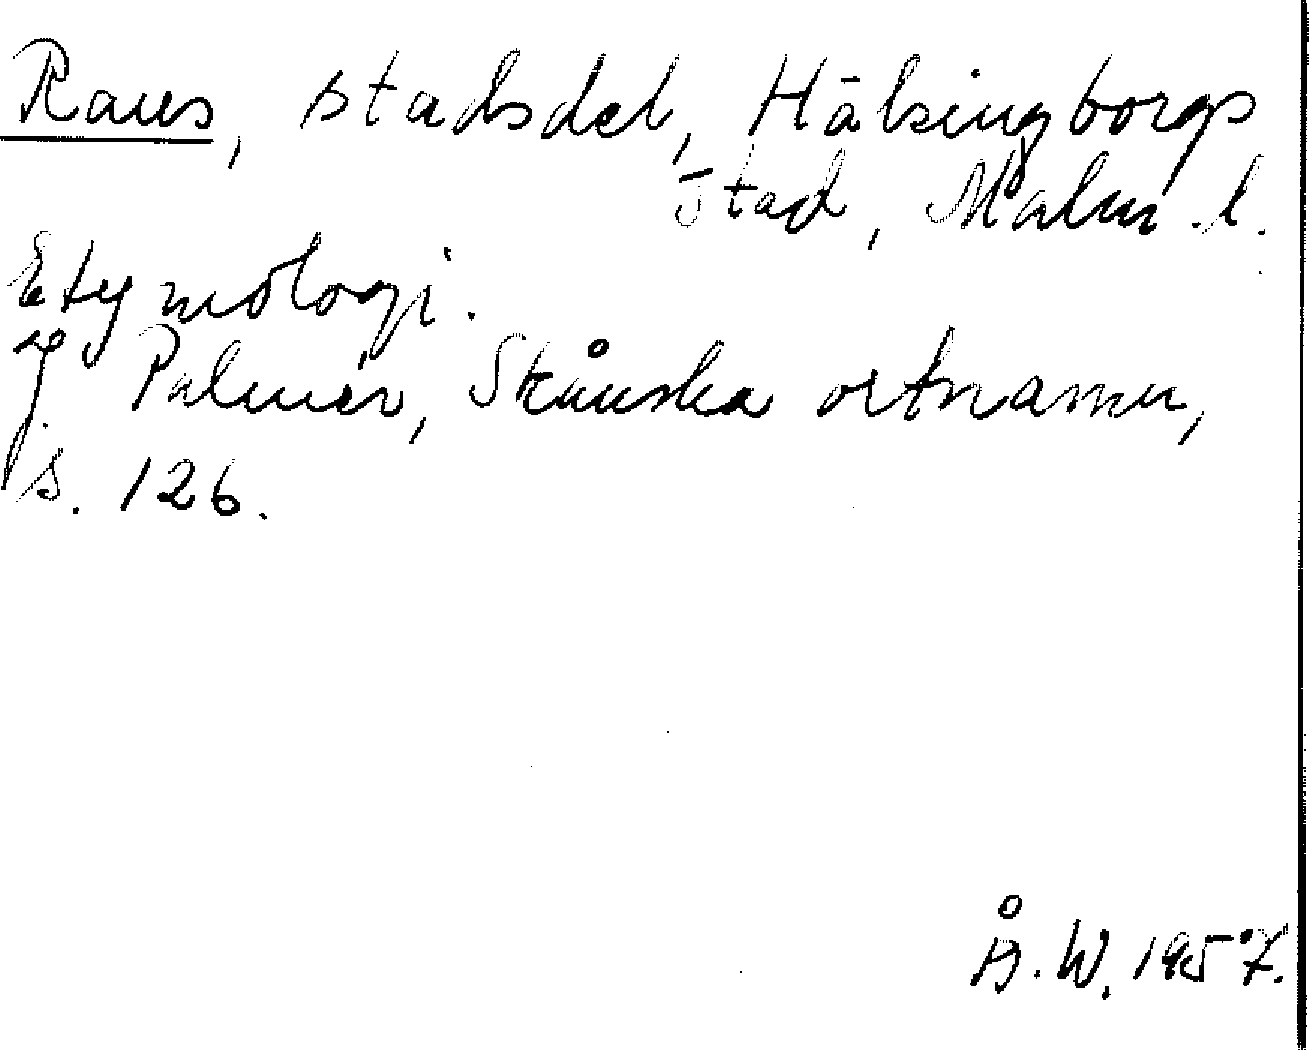 Raus, stadsdel, Hälsingborgs
stad, Malm. l.
Etymologi.
Palmér, Skånska ortnamn,
s. 126.
Å. W. 1957.